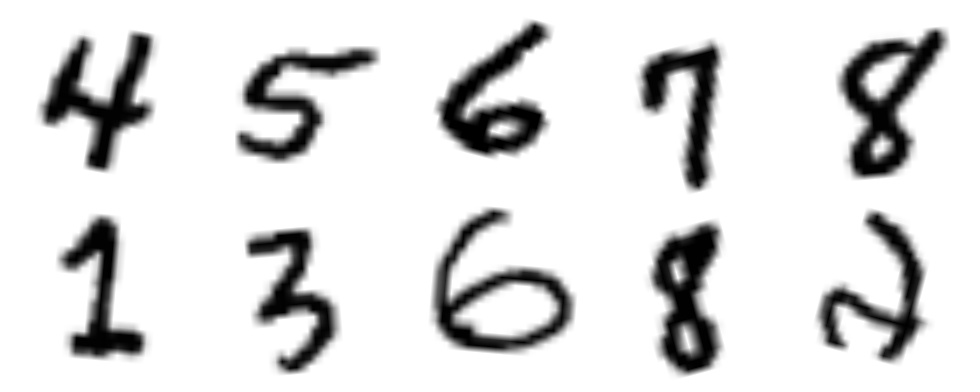 4 5 6 7 8
1 3 6 8 2